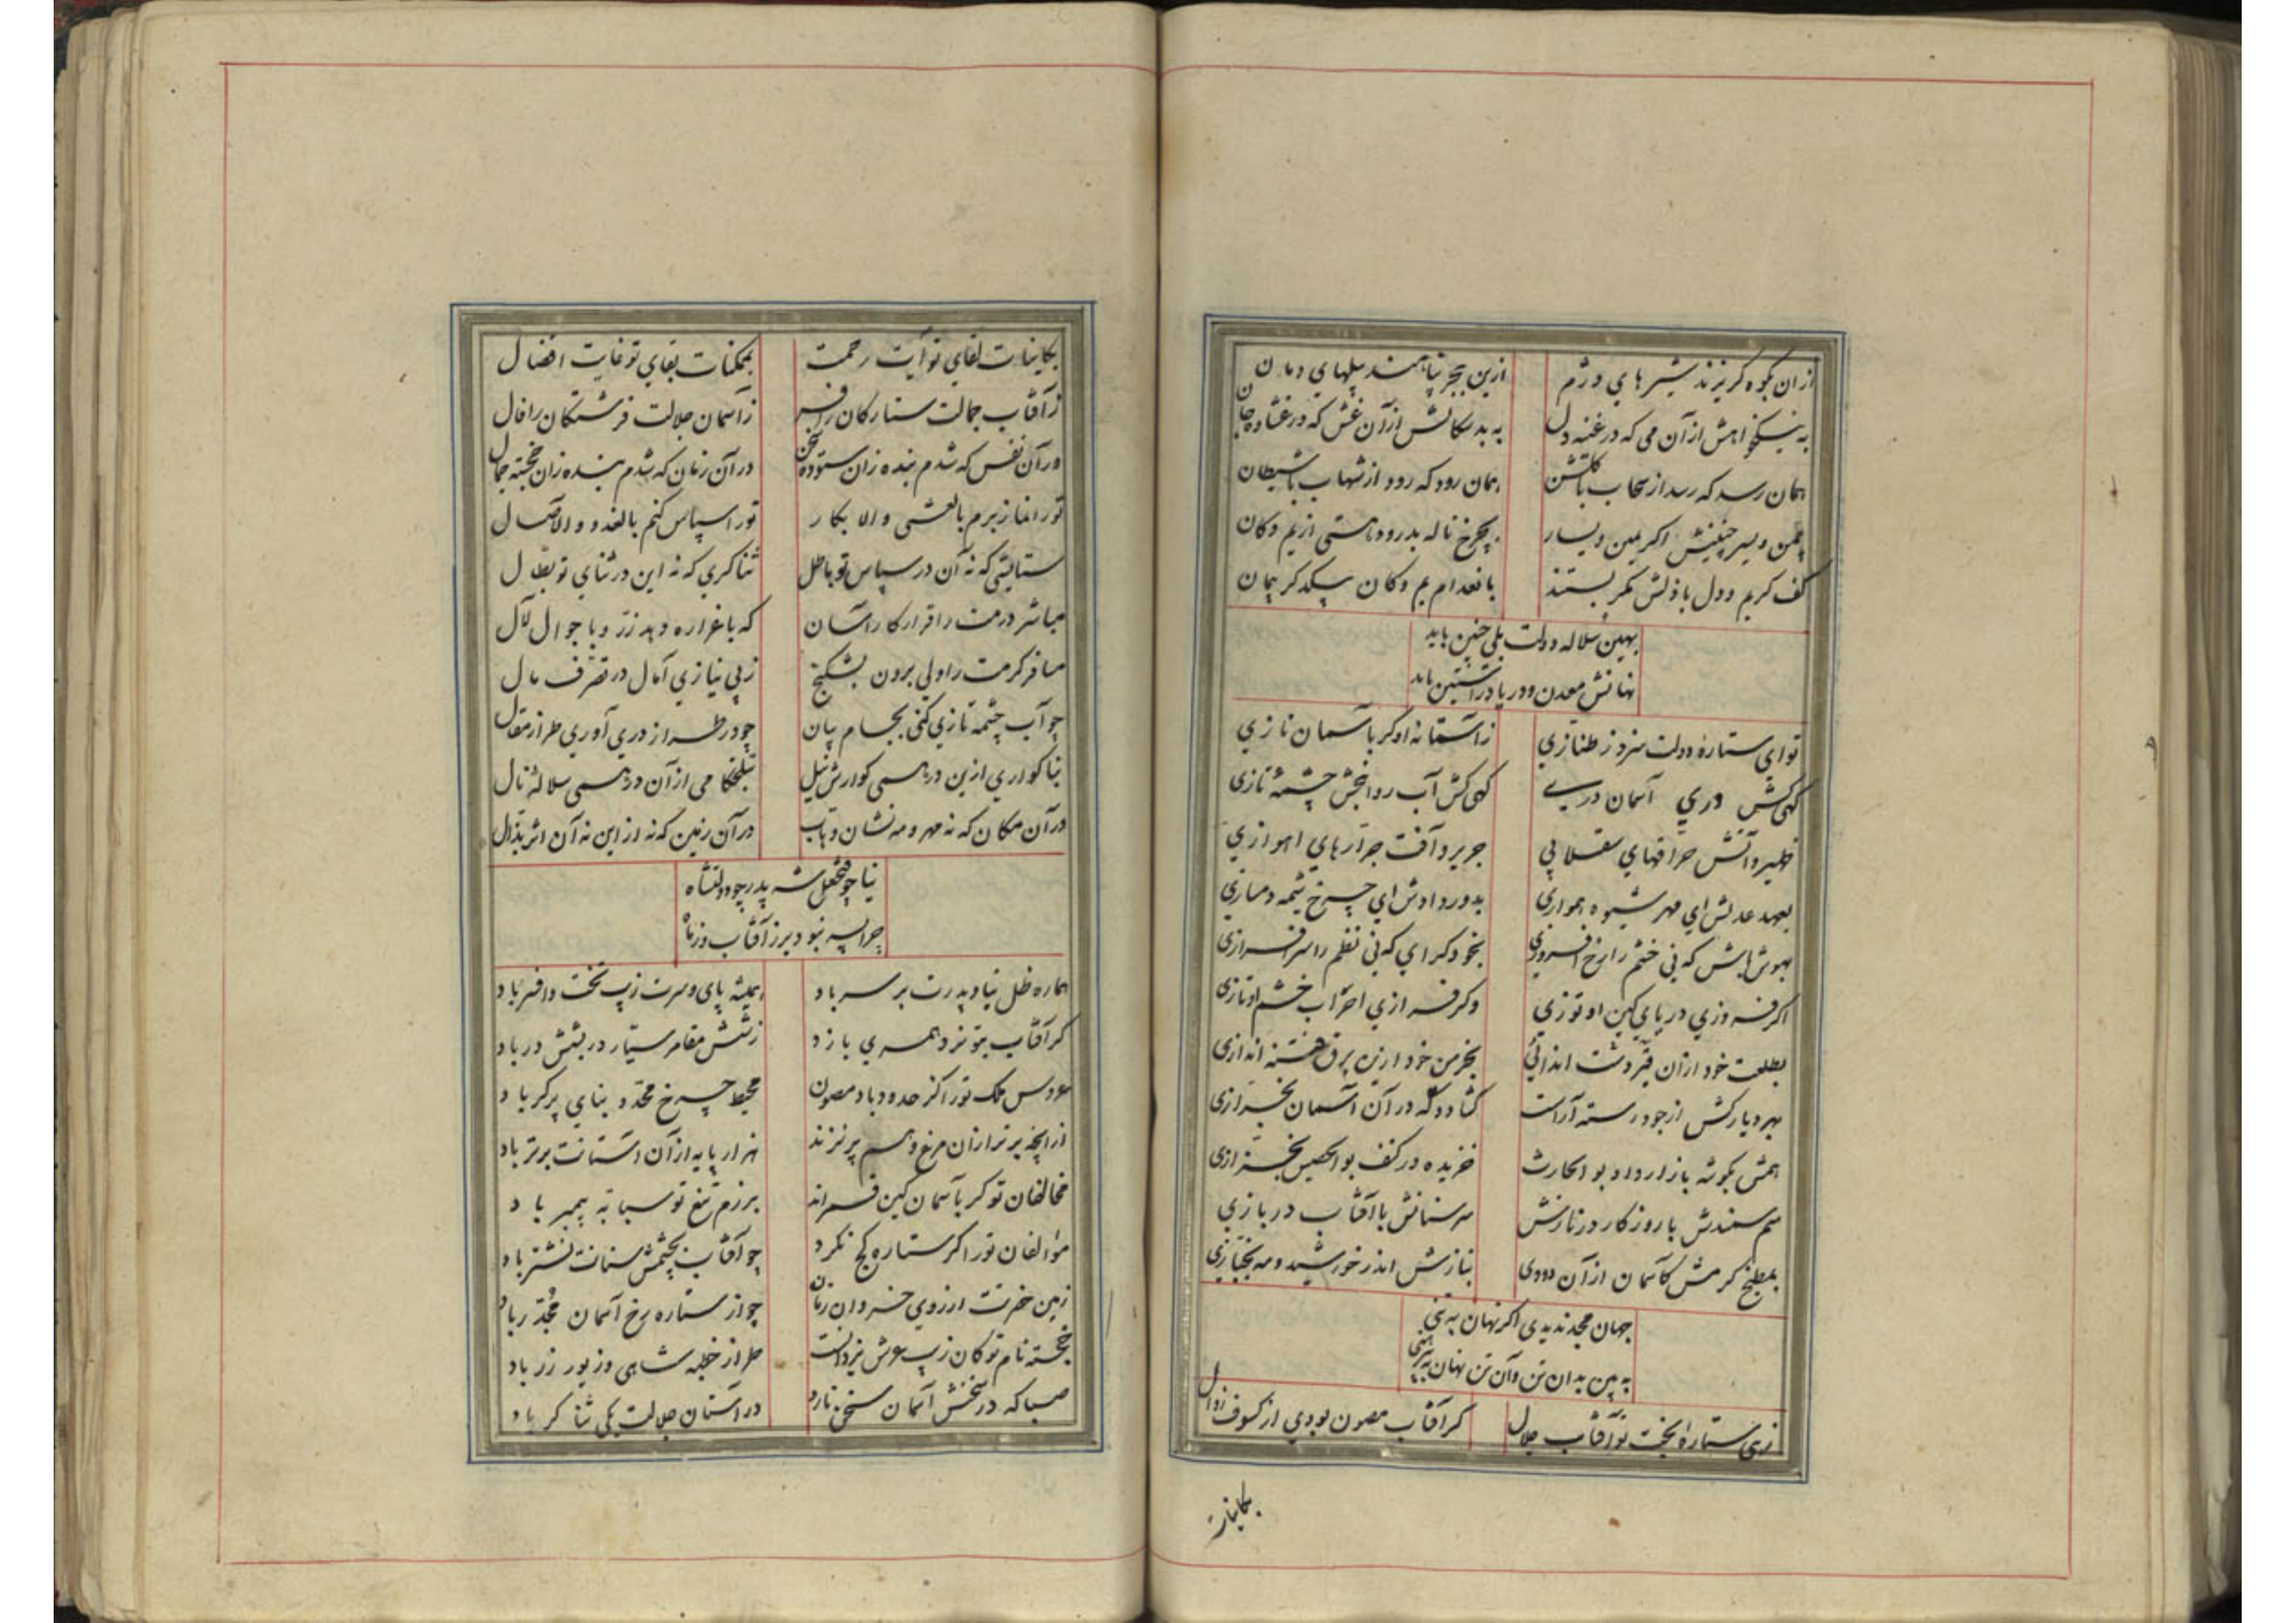 ازان بکوه کریزند شیرهای دژم ازین ببحر پناهند پیلهای دمان
به نیکخواهش ازآن می که در غنه دل به بدسکالش ازآن غش که در غشاوه جان
همان رسد که رسد از سحاب با کلشن همان رود که رود از شهاب با شیطان
یمن و یسر چنینش اکر یمین و یسار بچرخ ناله بدرود هستی از یم و کان
کف کریم و دل باذلش کمر بستند بانعدام یم و کان بیکدکر پیمان
بهین سلاله دولت بلی چنین باید
نهانش معدن و دریا در آستین باید
تو ای ستاره دولت سزد ز طنازی ز آستانه او کر بآسمان نازی
کهی کش دری آسمان دری کهی کش آب روانبخش چشمه تازی
ظهیر و آتش حراقهای سقلابی جریر و آفت جرارهای اهوازی
بعهد عدلش ای مهر شیوه همواری بدور دادش ای چرخ پیشه دمسازی
بهوش باش که نی خشم را رخ افروزی بخود کرای که نی نظم را سرافرازی
اکر فروزی دریای کین او توزی وکر فرازی احزاب خشم او تازی
بطلعت خود ازان قیر و مشت اندائی بخرمن خود ازین برق فتنه اندازی
بهر دیارکش از جود رسته آراست کشاد دکه در آن آسمان بخرازی
همش بکوشه بازار داد بوالحارث خزیده در کنف بوالحصین بخرازی
سم سمندش با روزکار در نازش سر سنانش با آفتاب در بازی
بمطبخ کرمش کآسمان ازآن دودی بنازش اندر خورشید و مه بخبازی
جهان مجد ندیدی اکر نهان به تنی
به بین بدان تن وآن تن نهان به پیرهنی
زهی ستاره بخت تو آفتاب جلال کر آفتاب مصون بودی از کسوف زوال
بکاینات
بکاینات لقای تو آیت رحمت بممکنات بقای تو غایت افضال
ز آفتاب جمالت ستارکان را فر ز آسمان جلالت فرشتکان را فال
در آن نفس که شدم بنده زان ستوده سخن در آن زمان که شدم بنده زان خجسته جمال
تو را نماز برم بالعشی و الابکار تو را سپاس کنم بالغدو و الآصال
ستایشی که نه آن در سپاس تو باطل ثناکری که نه این در ثنای تو بطال
مباشر درمت را قرار کار آسان که با غراره دهد زر و با جوال لآل
مسافر کرمت را ولی برون بشکنج ز بی نیازی آمال در تصرف مال
چو آب چشمه تازی کنی بجام بیان چو در طراز دری آوری طراز مقال
بناکواری ازین در همی کوارش نیل بتلخکامی ازآن در همی سلاله نال
در آن مکان که نه مهر و مه نشان و بتاب در آن زمین که نه از این نه آن اثر بذال
نیا چو فتحعلی شه پدر چو دولتشاه
چرا پسر نبود برز آفتاب و ز ماه
هماره ظل نیا و پدرت بر سر باد همیشه پای و سرت زیب تخت و افسر باد
کر آفتاب بتو نرد همسری بازد ز شش مقامر سیار در بشش در باد
عروس ملک تو را کز حدود باد مصون محیط چرخ محدد بنای پرکر باد
ازآنچه برتر ازان مرغ وهم پر نزند هزار پایه ازآن آستانت برتر باد
مخالفان تو کر بآسمان کین فرماند برزم تیغ تو سبابه پیمبر باد
موالفان تو را کر ستاره کج نکرد چو آفتاب بچشمش سنانت نشتر باد
زمین حضرتت از روی خسروان زمان چو از ستاره رخ آسمان مجدر باد
خجسته نام تو کان زیب عرش یزدانست طراز خطبه شاهی و زیور زر باد
صبا که در سخنش آسمان سخن نارد در آستان جلالت یکی ثناکر باد